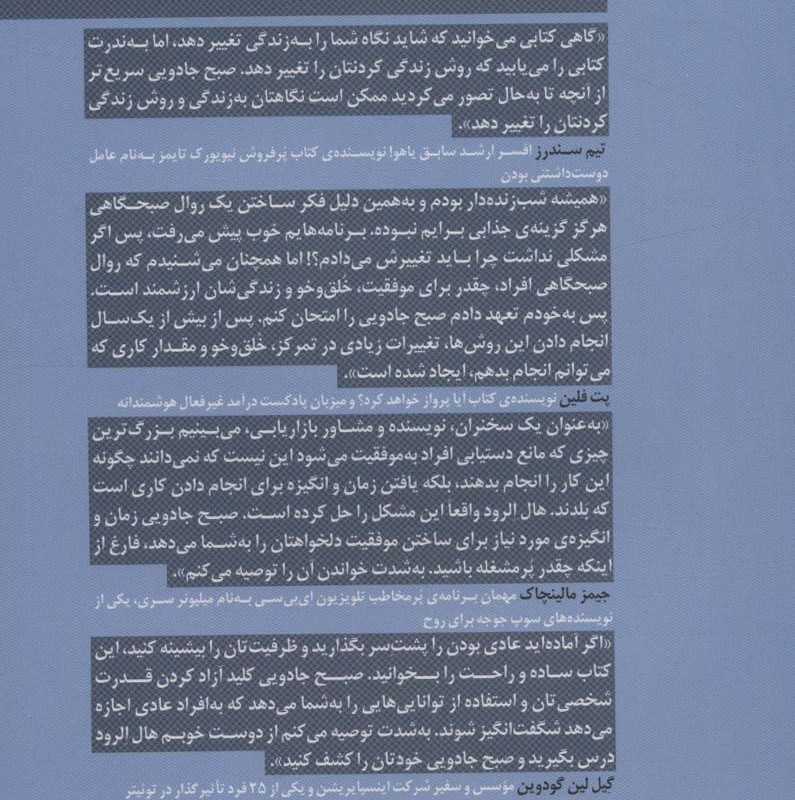 «گاهی کتابی می‌خوانید که شاید نگاه شما را به‌زندگی تغییر دهد، اما به‌ندرت
کتابی را می‌یابید که روش زندگی کردنتان را تغییر دهد. صبح جادویی سریع‌تر
از آنچه تا به‌حال تصور می‌کردید ممکن است نگاهتان به‌زندگی و روش زندگی
کردنتان را تغییر دهد».
تیم سندرز افسر ارشد سابق یاهو! نویسنده‌ی کتاب پرفروش نیویورک تایمز به‌نام عامل
دوست‌داشتنی بودن
«همیشه شب‌زنده‌دار بودم و به‌همین دلیل فکر ساختن یک روال صبحگاهی
هرگز گزینه‌ی جذابی برایم نبوده. برنامه‌هایم خوب پیش می‌رفت، پس اگر
مشکلی نداشت چرا باید تغییرش می‌دادم؟! اما همچنان می‌شنیدم که روال
صبحگاهی افراد، چقدر برای موفقیت، خُلق‌وخو و زندگی‌شان ارزشمند است.
پس به‌خودم تعهد دادم صبح جادویی را امتحان کنم. پس از بیش از یک‌سال
انجام دادن این روش‌ها، تغییرات زیادی در تمرکز، خلق‌وخو و مقدار کاری که
می‌توانم انجام بدهم، ایجاد شده است».
پت فلین نویسنده‌ی کتاب آیا پرواز خواهد کرد؟ و میزبان پادکست درآمد غیرفعال هوشمندانه
«به‌عنوان یک سخنران، نویسنده و مشاور بازاریابی، می‌بینیم بزرگ‌ترین
چیزی که مانع دستیابی افراد به‌موفقیت می‌شود این نیست که نمی‌دانند چگونه
این کار را انجام بدهند، بلکه یافتن زمان و انگیزه برای انجام دادن کاری است
که بلدند. هال الرود واقعاً این مشکل را حل کرده است. صبح جادویی زمان و
انگیزه‌ی مورد نیاز برای ساختن موفقیت دلخواهتان را به‌شما می‌دهد، فارغ از
اینکه چقدر پُرمشغله باشید. به‌شدت خواندن آن را توصیه می‌کنم».
جیمز مالینچاک مهمان برنامه‌ی پُرمخاطب تلویزیون ای‌بی‌سی به‌نام میلیونر سری، یکی از
نویسنده‌های سوپ جوجه برای روح
«اگر آماده‌اید عادی بودن را پشت‌سر بگذارید و ظرفیت‌تان را بیشینه کنید، این
کتاب ساده و راحت را بخوانید. صبح جادویی کلید آزاد کردن قدرت
شخصی‌تان و استفاده از توانایی‌هایی را به‌شما می‌دهد که به‌افراد عادی اجازه
می‌دهد شگفت‌انگیز شوند. به‌شدت توصیه می‌کنم از دوست خوبم هال الرود
درس بگیرید و صبح جادویی خودتان را کشف کنید».
گیل لین گودوین مؤسس و سفیر شرکت اینسپایریشن و یکی از ۲۵ فرد تأثیرگذار در توئیتر